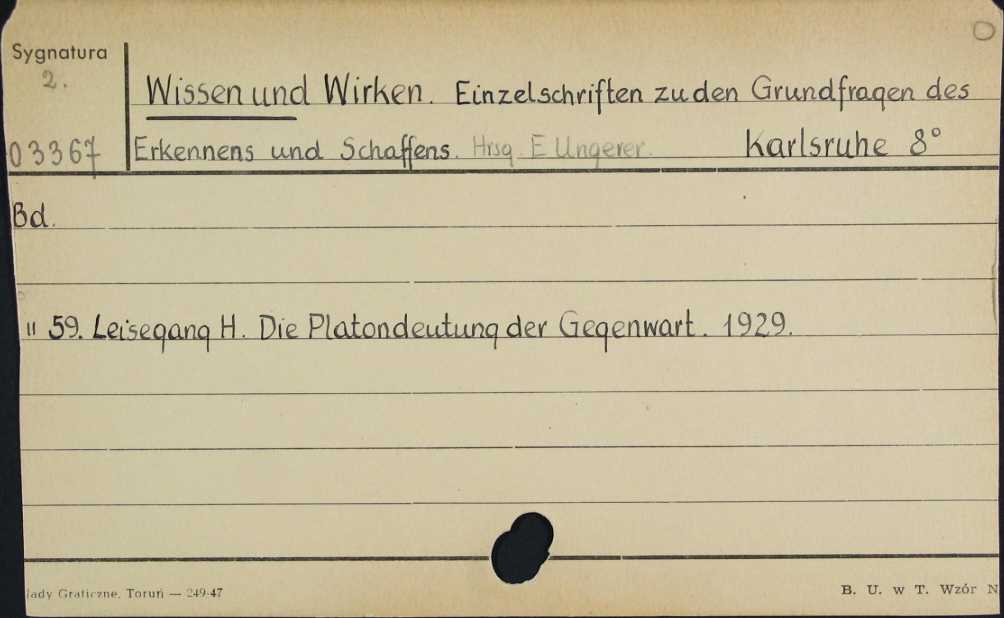 Sygnatura
2.
Wissen und Wirken. Einzelschriften zu den Grundfragen des
03367
Erkennens und Schaffens. Hrsg. E Ungerer. Karlsruhe 8°
Bd.
" 59. Leisegang H. Die Platondeutung der Gegenwart. 1929.
łady Graficzne, Toruń — 249-47
B. U. w T. Wzór N